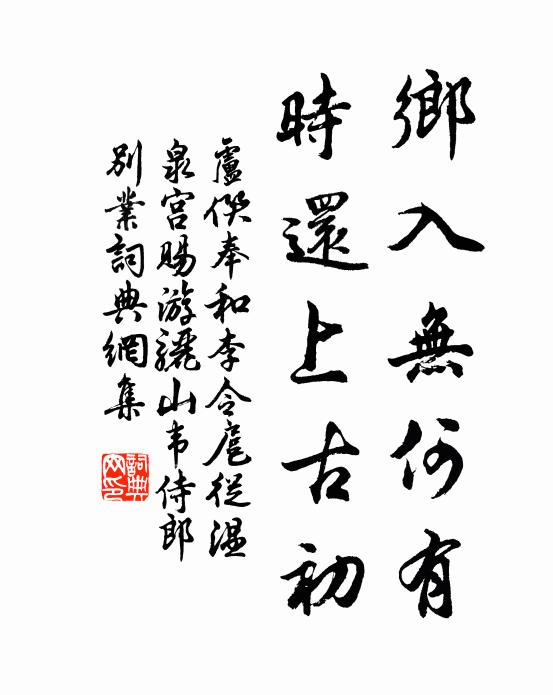 鄉入無何有
時還上古初
盧僎奉和李令扈從溫
泉宮賜游驪山韦侍郎
別業詞典網集
詞典网印